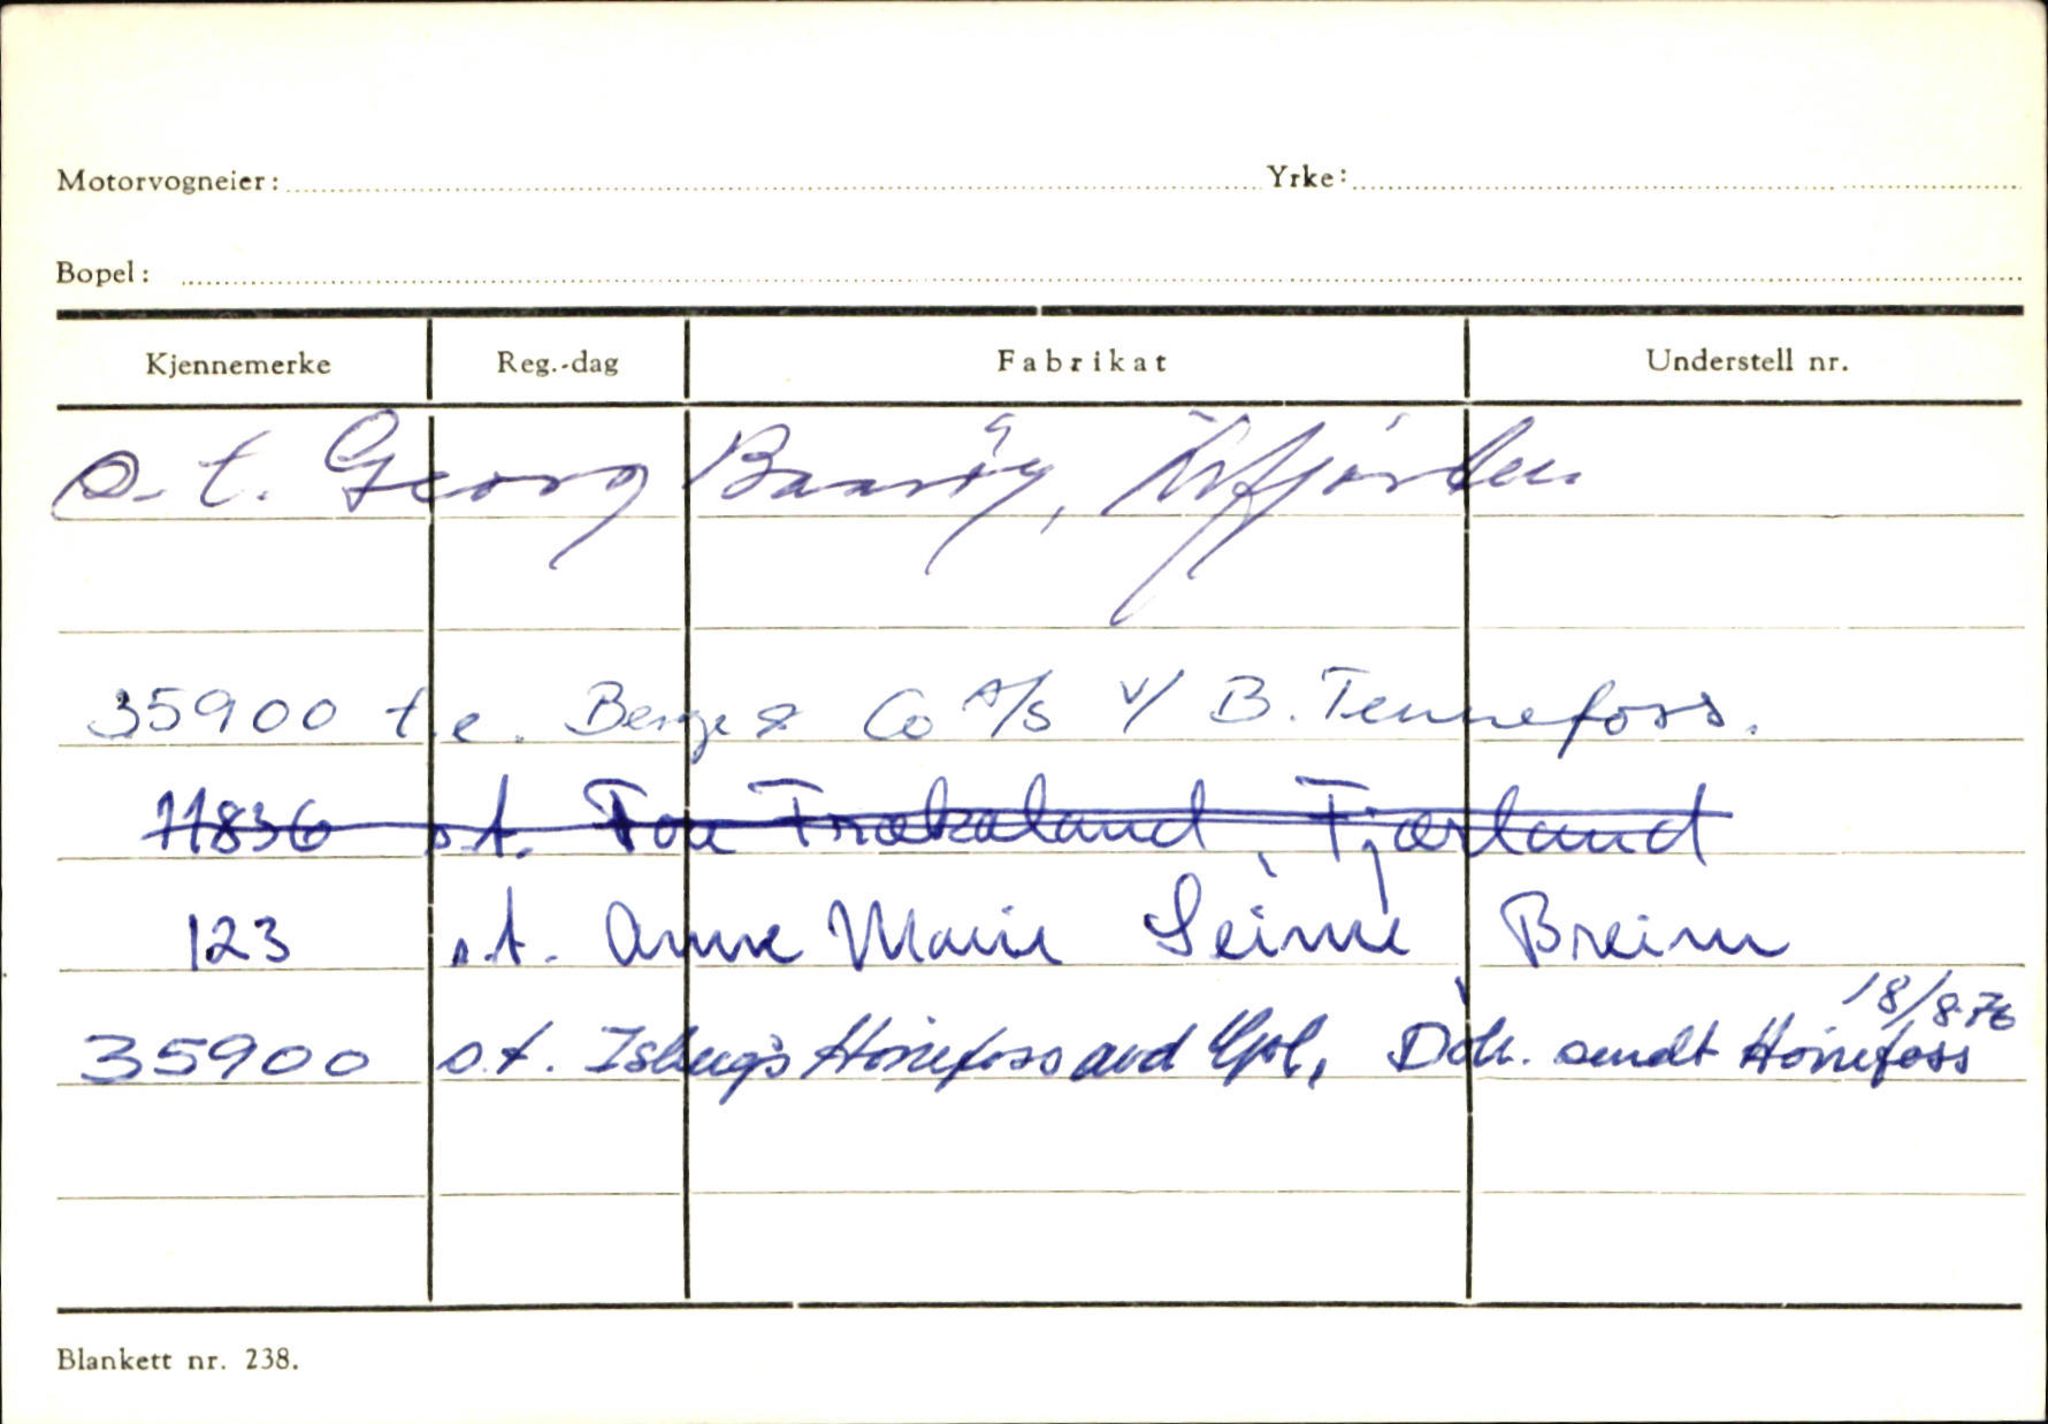 Motorvogneier:
Yrke:
Bopel:
Kjennemerke Reg.-dag Fabrikat Understell nr.
s. t. Georg
35900 t.e. Berge & Co A/S v/ B. Tennefoss.
11836 s.t. Tor Frækaland, Fjærland
123 s.t. Anne Marie Seime Breim
18/8-76
35900 s.t. Hønefoss avd Dok. sendt Hønefoss
Blankett nr. 238.